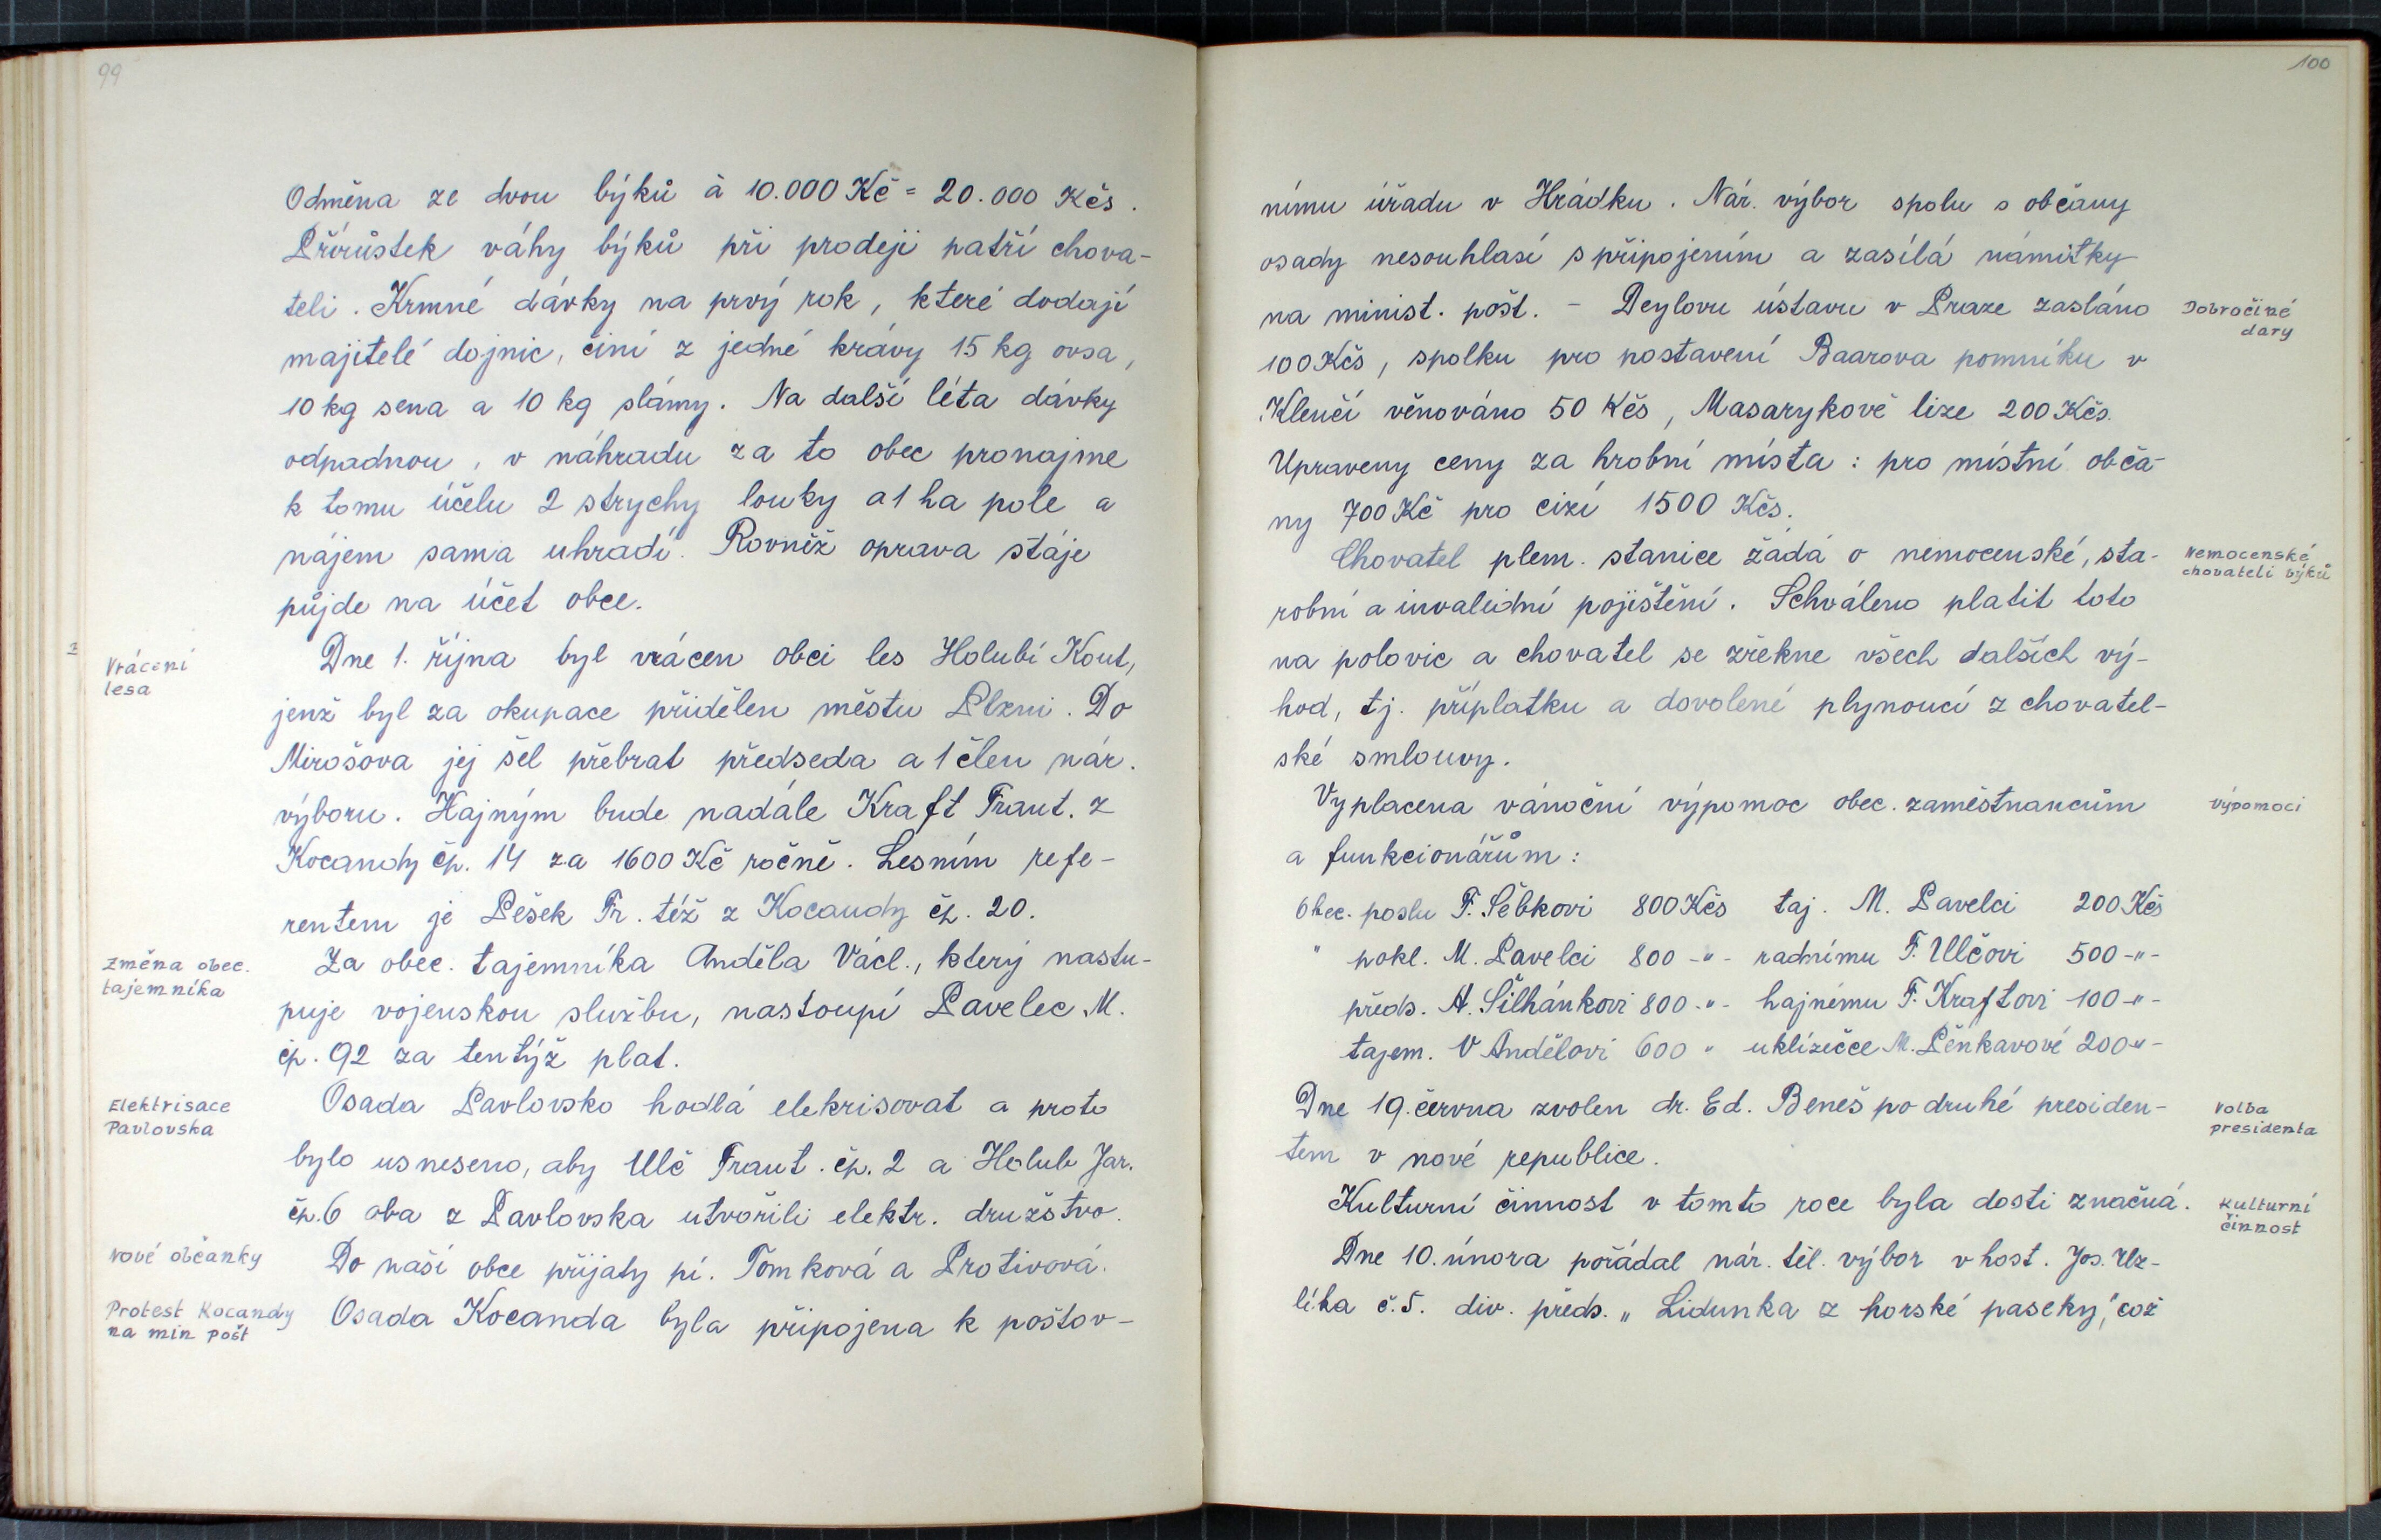 99
Odměna ze dvou býků à 10.000 Kč = 20.000 Kčs.
Přírůstek váhy býků při prodeji patří chova-
teli. Krmné dávky na prvý rok, které dodají
majitelé dojnic, činí z jedné krávy 15 kg ovsa,
10 kg sena a 10 kg slámy. Na další léta dávky
odpadnou, v náhradu za to obec pronajme
k tomu účelu 2 strychy louky a 1 ha pole a
nájem sama uhradí. Rovněž oprava stáje
půjde na účet obce.
Vrácení
lesa
Dne 1. října byl vrácen obci les Holubí Kout,
jenž byl za okupace přidělen městu Plzni. Do
Mirošova jej šel přebrat předseda a 1 člen nár.
výboru. Hajným bude nadále Kraft Frant. z
Kocandy čp. 14 za 1600 Kč ročně. Lesním refe-
rentem je Pešek Fr. též z Kocandy čp. 20.
Změna obec.
tajemníka
Za obec. tajemníka Anděla Václ., který nastu-
puje vojenskou službu, nastoupí Pavelec M.
čp. 92 za tentýž plat.
Elektrisace
Pavlovska
Osada Pavlovsko hodlá elekrisovat a proto
bylo usneseno, aby Ulč Frant. čp. 2 a Holub Jar.
čp. 6 oba z Pavlovska utvořili elektr. družstvo.
Nové občanky
Do naší obce přijaty pí. Tomková a Protivová.
Protest Kocandy
na min pošt
Osada Kocanda byla připojena k poštov-
100
nímu úřadu v Hrádku. Nár. výbor spolu s občany
osady nesouhlasí s připojením a zasílá námitky
na minist. pošt. - Deylovu ústavu v Praze zasláno
Dobročiné
dary
100 Kčs, spolku pro postavení Baarova pomníku v
Klenčí věnováno 50 Kčs, Masarykově lize 200 Kčs.
Upraveny ceny za hrobní místa: pro místní obča-
ny 700 Kč pro cizí 1500 Kčs.
Chovatel plem. stanice žádá o nemocenské, sta-
Nemocenské
chovateli býků
robní a invalidní pojištění. Schváleno platit toto
na polovic a chovatel se zřekne všech dalších vý-
hod, tj. příplatku a dovolené plynoucí z chovatel-
ské smlouvy.
Vyplacena vánoční výpomoc obec. zaměstnancům
Výpomoci
a funkcionářům:
Obec. poslu F. Šebkovi 800 Kčs taj. M. Pavelci 200 Kčs
" pokl. M. Pavelci 800 -"- radnímu F. Ulčovi 500 -"-
předs. A. Šilhánkovi 800 -"- hajnému F. Kraftovi 100 -"-
tajem. V Andělovi 600 " uklízečce M. Pěnkavové 200 -"-
Dne 19. června zvolen dr. Ed. Beneš po druhé presiden-
Volba
presidenta
tem v nové republice.
Kulturní činnost v tomto roce byla dosti značná.
Kulturní
činnost
Dne 10. února pořádal nár. těl. výbor v host. Jos. Uz-
líka č. 5. div. předs. „Lidunka z horské paseky", což